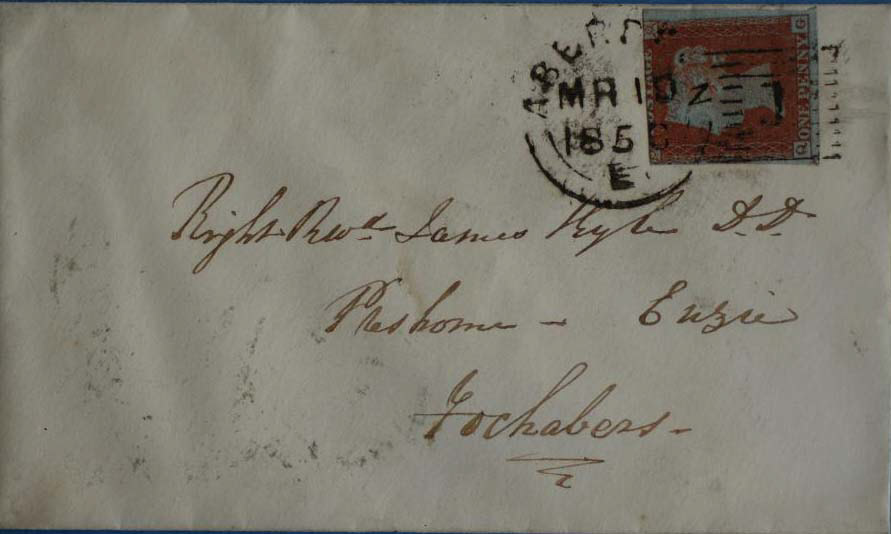 ABERD
MR 10
185
E
POSTAGE
ONE PENNY
Q G
1
Right Revd. James Kyle D.D.
Preshome - Enzie
Fochabers -